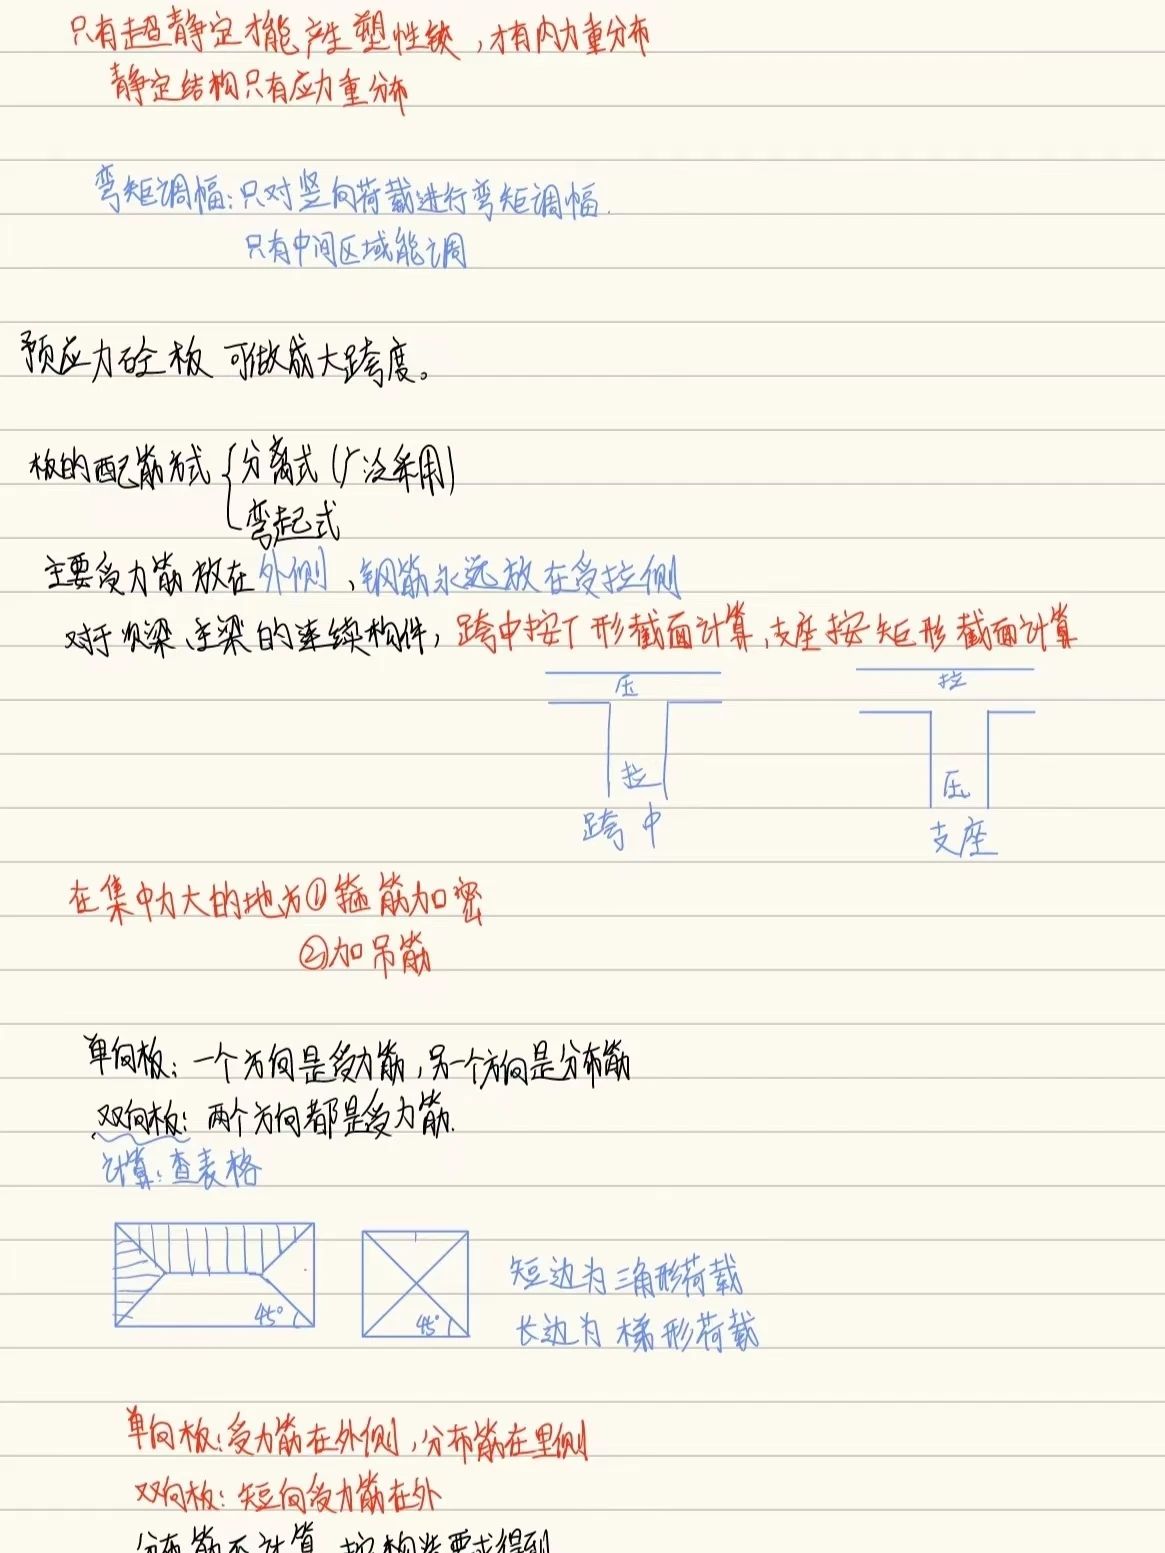 只有超静定才能产生塑性铰，才有内力重分布
静定结构只有应力重分布
弯矩调幅：只对竖向荷载进行弯矩调幅.
只有中间区域能调
预应力砼板 可做成大跨度。
板的配筋方式 { 分离式（广泛采用）
弯起式
主要受力筋放在外侧，钢筋永远放在受拉侧
对于次梁、主梁的连续构件，跨中按T形截面计算，支座按矩形截面计算
压 拉
拉 压
跨中 支座
在集中力大的地方①箍筋加密
②加吊筋
单向板：一个方向是受力筋，另一个方向是分布筋
双向板：两个方向都是受力筋.
计算：查表格
45° 45°
短边为三角形荷载
长边为梯形荷载
单向板：受力筋在外侧，分布筋在里侧
双向板：短向受力筋在外
分布筋不计算，按构造要求得到